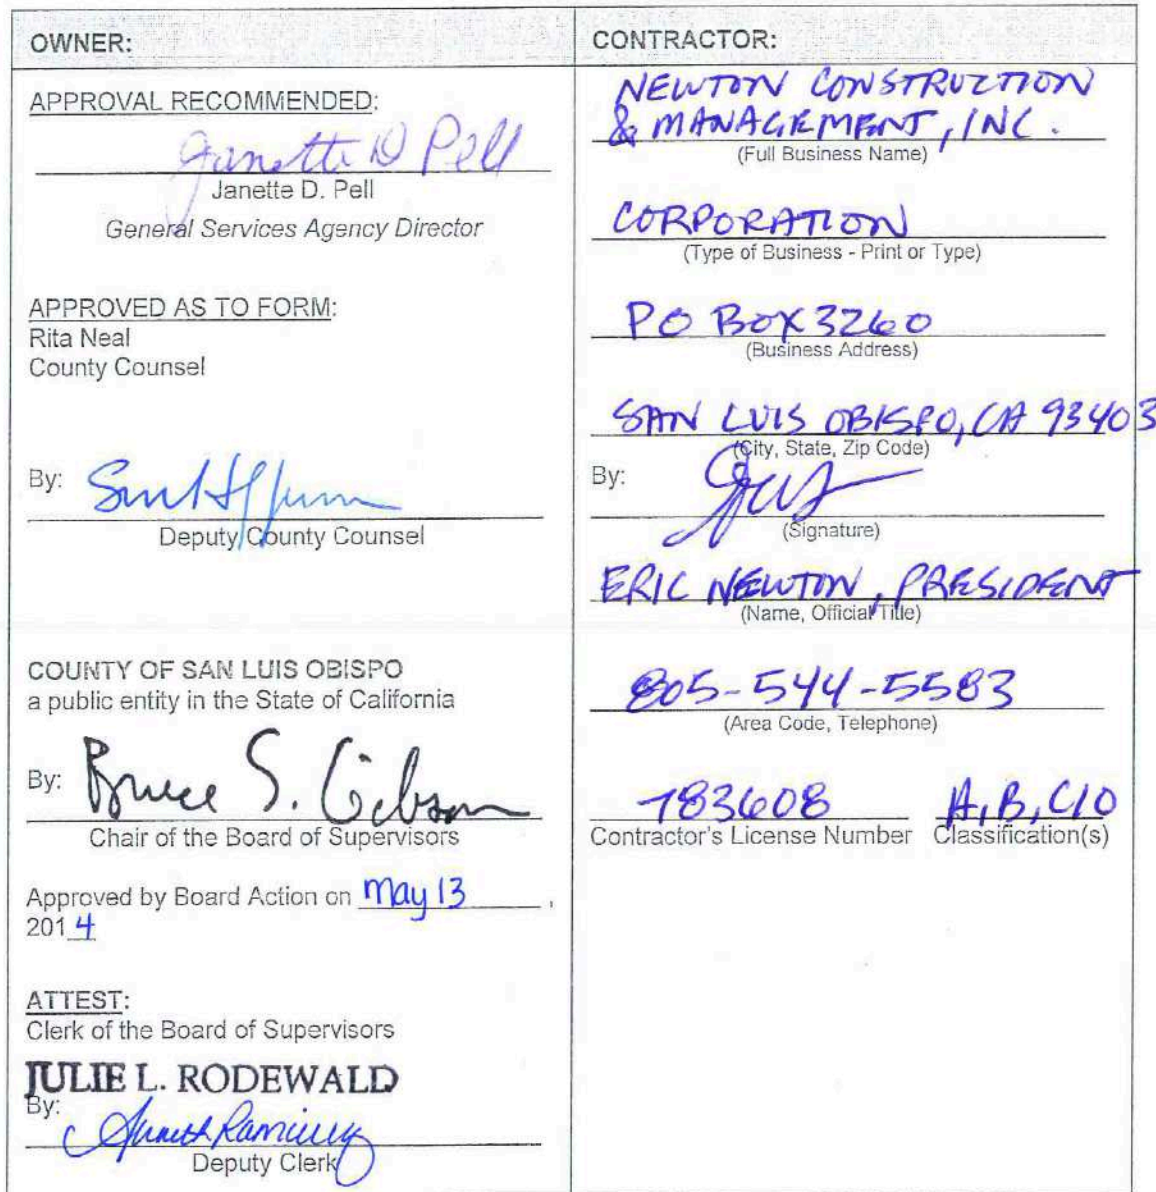 OWNER:
APPROVAL RECOMMENDED:
Janette D Pell
Janette D. Pell
General Services Agency Director
APPROVED AS TO FORM:
Rita Neal
County Counsel
By:
Deputy County Counsel
COUNTY OF SAN LUIS OBISPO
a public entity in the State of California
By: Bruce S. Gibson
Chair of the Board of Supervisors
Approved by Board Action on May 13,
2014
ATTEST:
Clerk of the Board of Supervisors
JULIE L. RODEWALD
By:
Deputy Clerk
CONTRACTOR:
NEWTON CONSTRUCTION
& MANAGEMENT, INC.
(Full Business Name)
CORPORATION
(Type of Business - Print or Type)
PO BOX 3260
(Business Address)
SAN LUIS OBISPO, CA 93403
(City, State, Zip Code)
By:
(Signature)
ERIC NEWTON, PRESIDENT
(Name, Official Title)
805-544-5583
(Area Code, Telephone)
783608 A, B, C10
Contractor's License Number Classification(s)